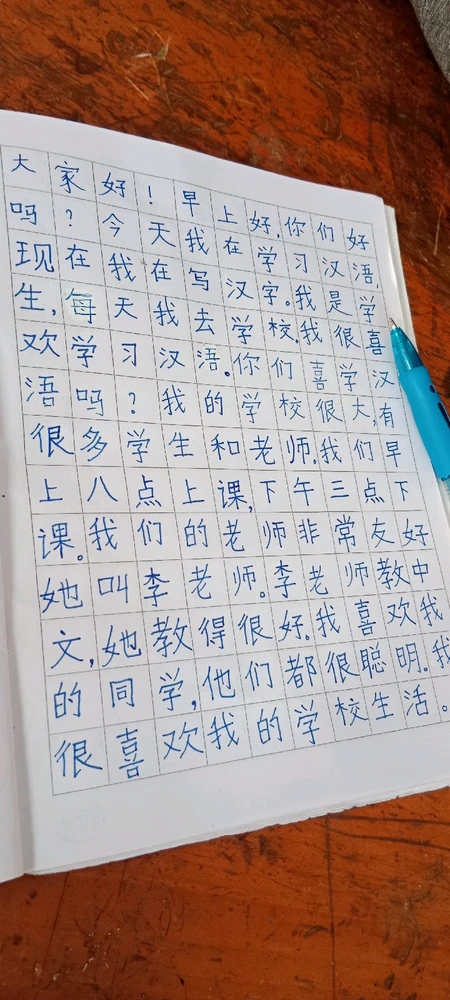 大家好！早上好,你们好
吗？今天我在学习汉语
现在我在写汉字。我是学
生,每天我去学校.我很喜
欢学习汉语。你们喜学汉
语吗？我的学校很大,有
很多学生和老师.我们早
上八点上课,下午三点下
课。我们的老师非常友好
她叫李老师。李老师教中
文,她教得很好.我喜欢我
的同学,他们都很聪明.我
很喜欢我的学校生活。